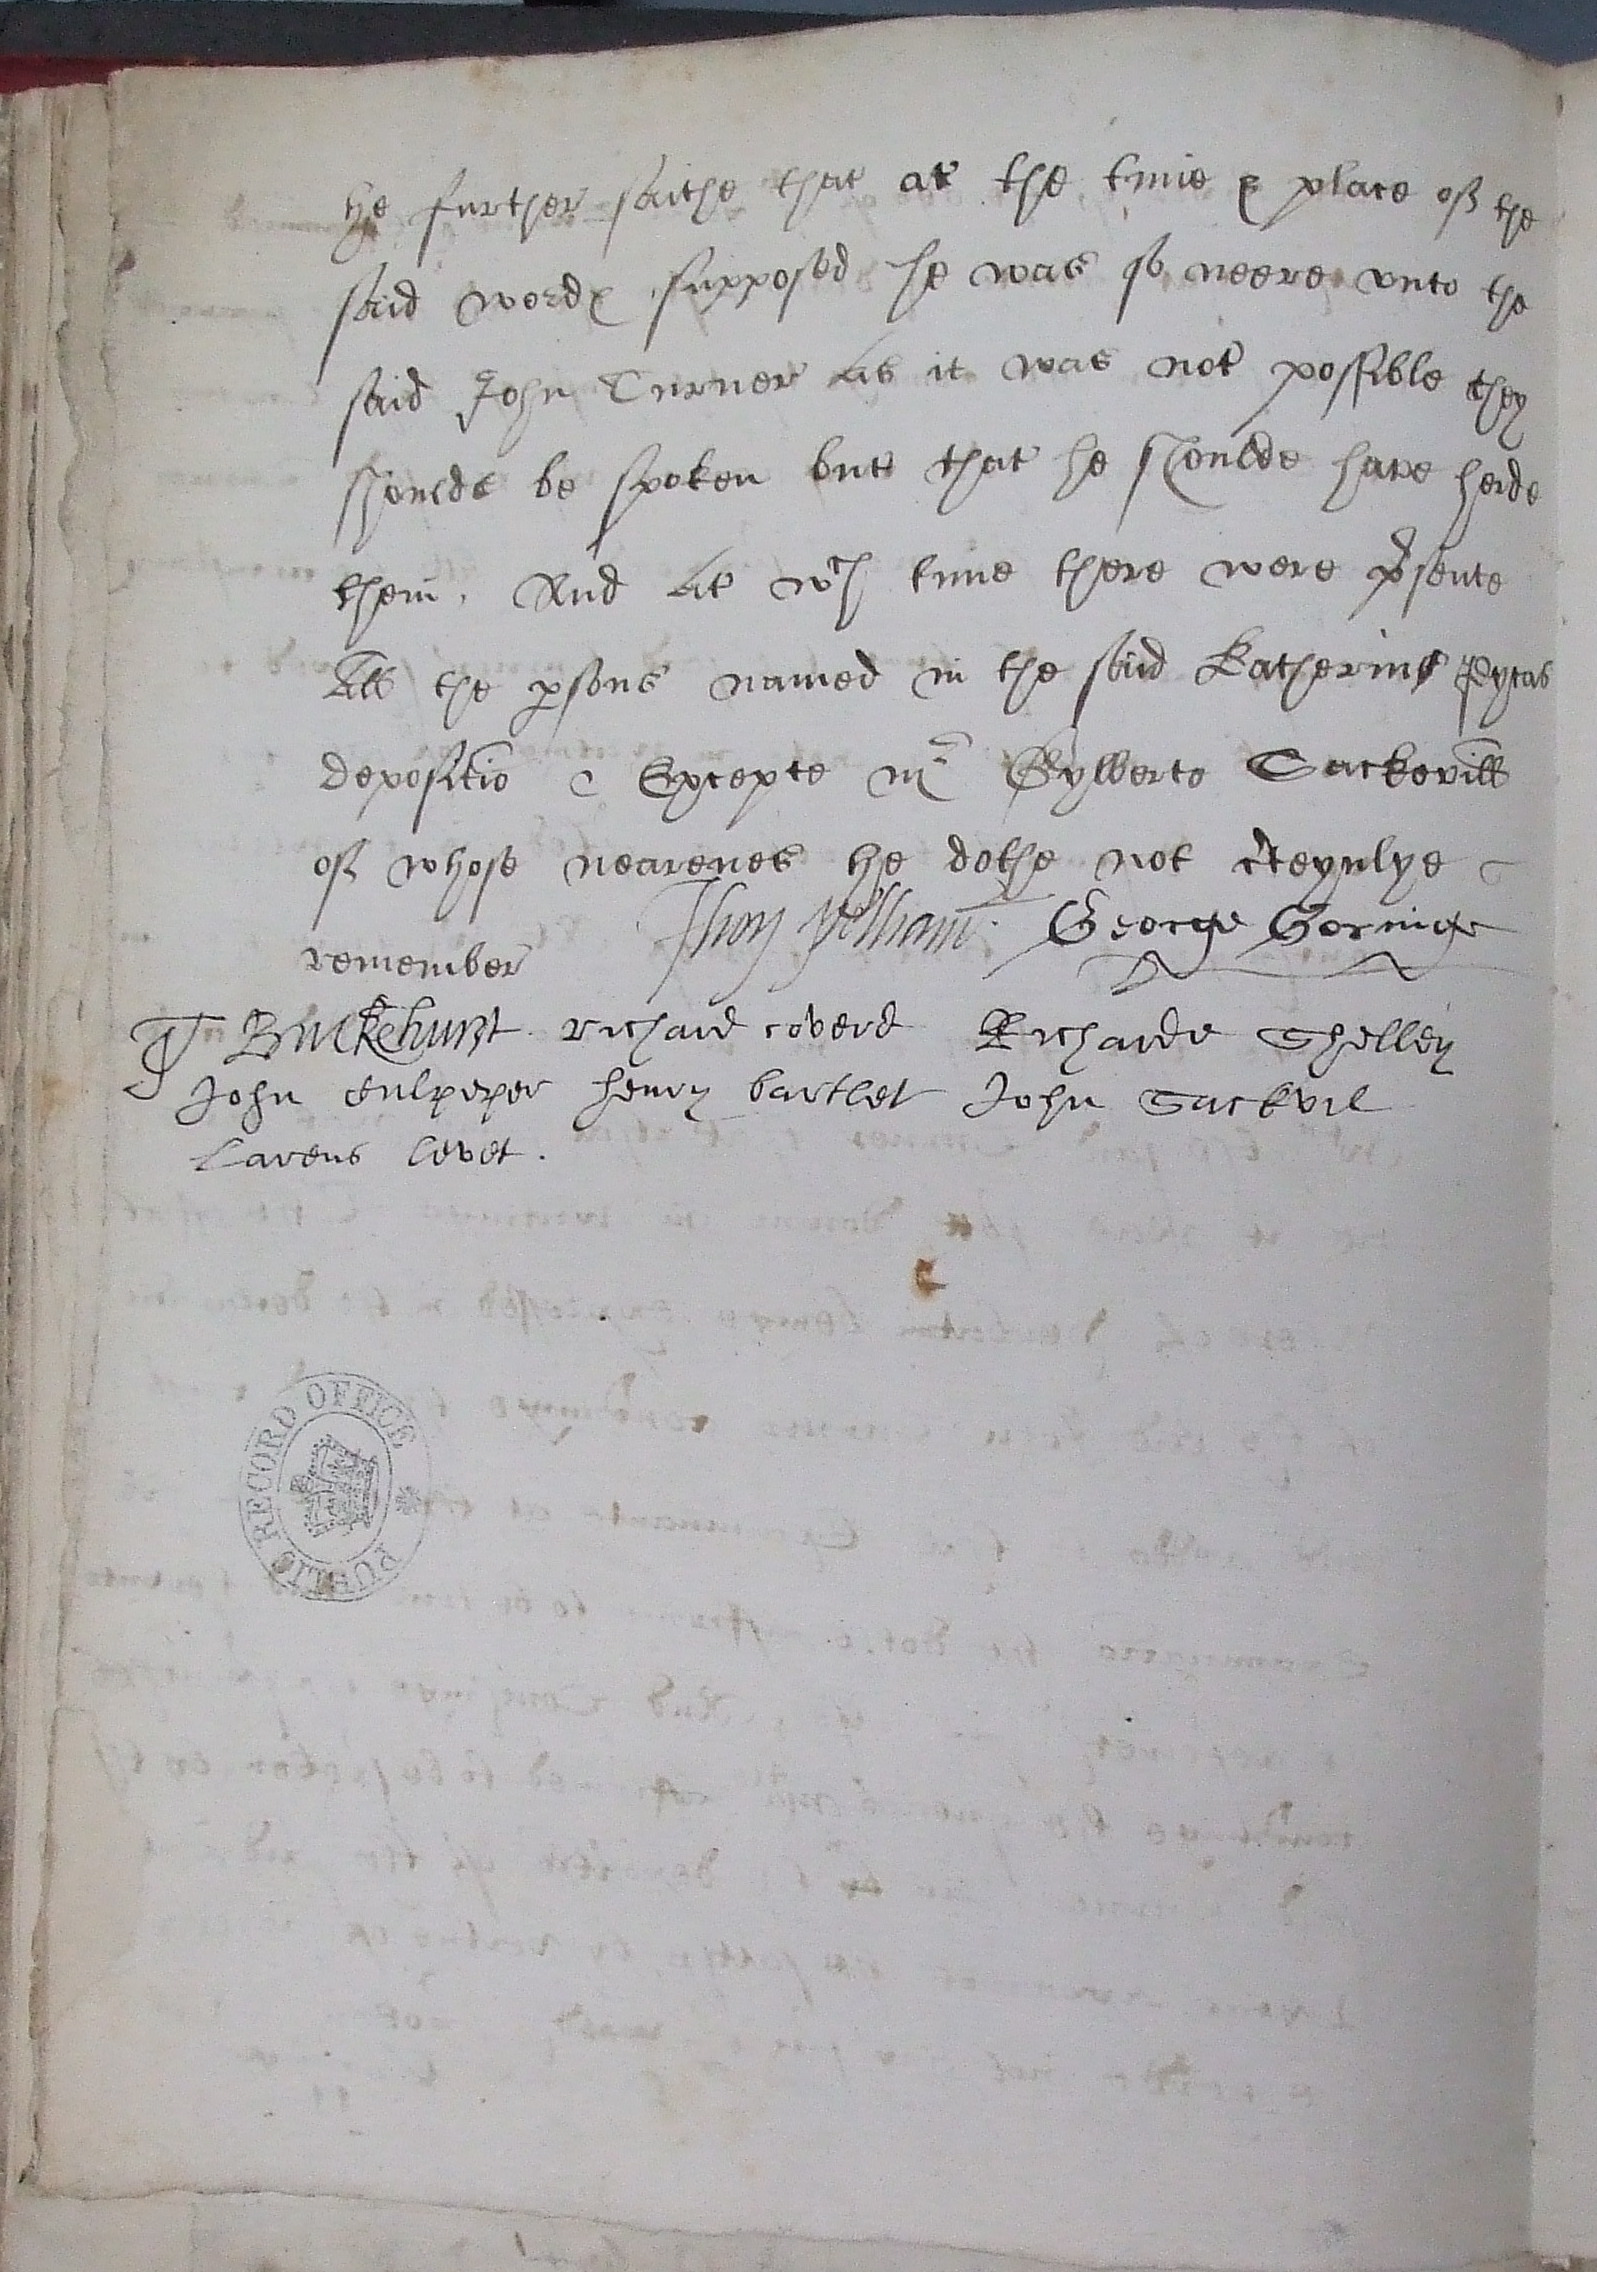 he further saithe that at the time & place of the
said wordes supposed he was so neere vnto the
said John Turner as it was not possible they
shoulde be spoken but that he shoulde have herde
them. And at wch time there were psente
All the psons named in the said Katherine
depositio Excepte mr Gylberte Sackevill
of whose nearenes he dothe not cteynlye
remember
Thos pelham George Goringe
T Buckehurst richard coverd Richarde Shelley
John culpeper henry bartlet John Sackvil
Larens levet.
PUBLIC RECORD OFFICE